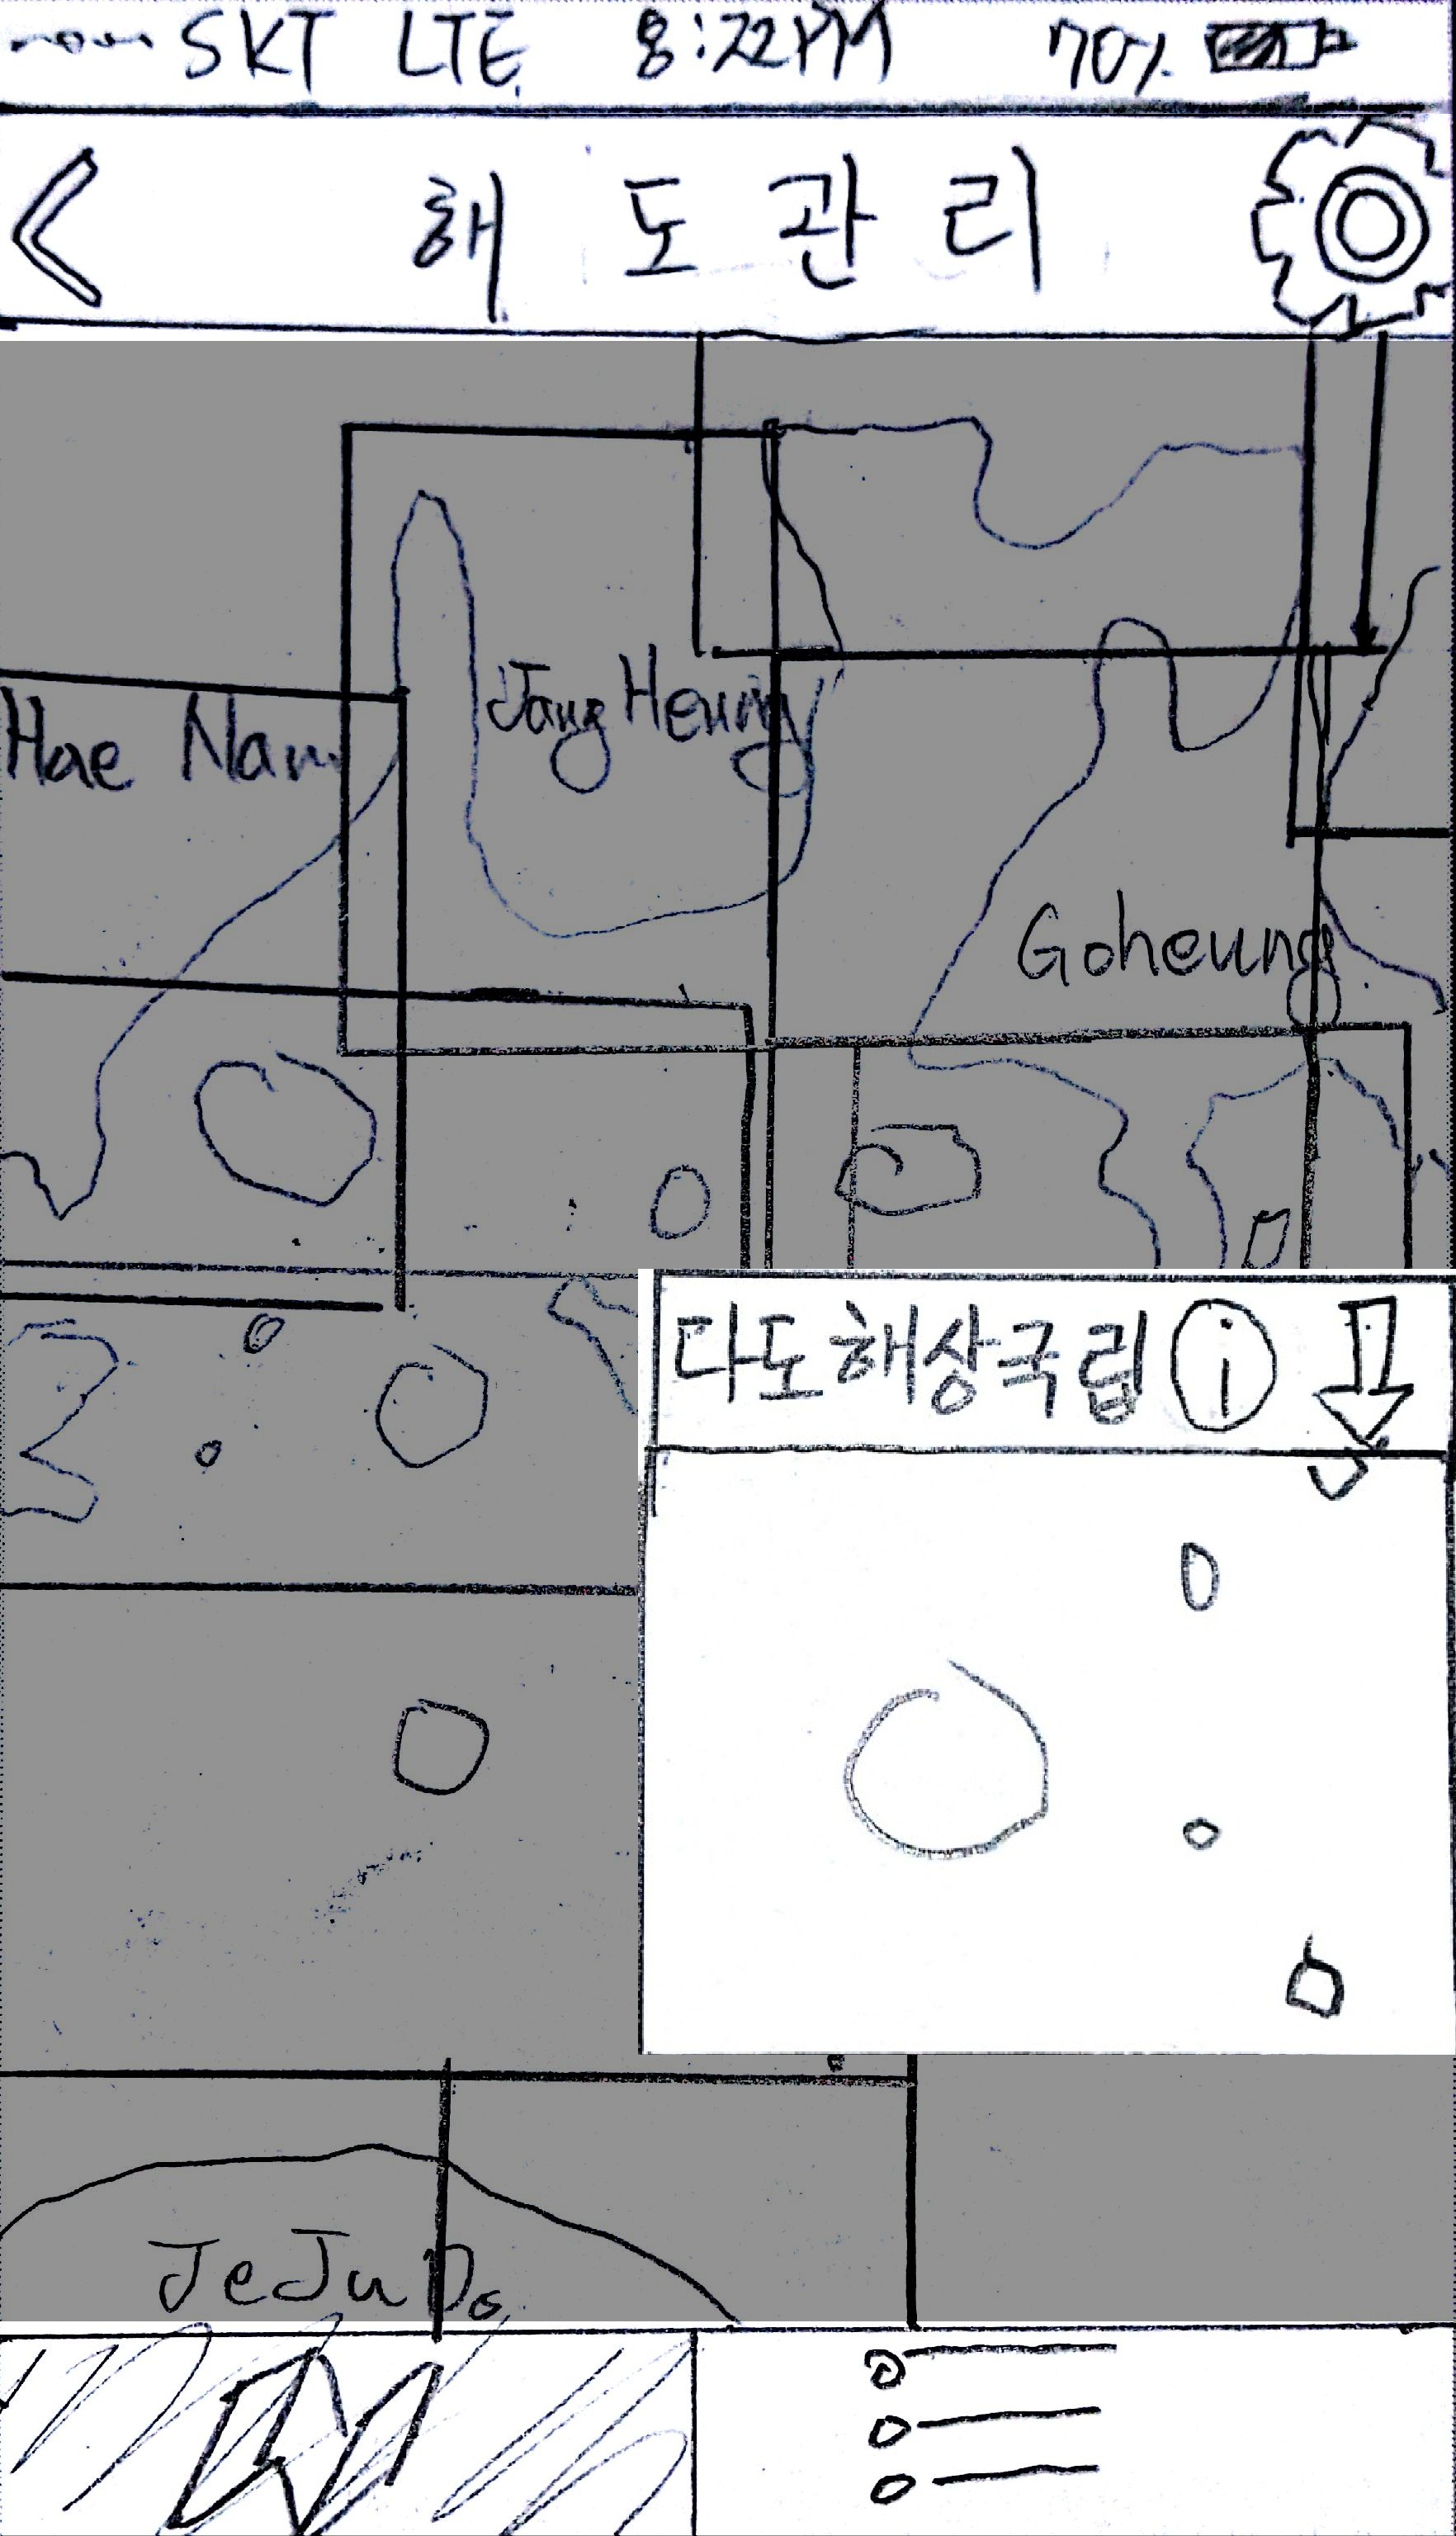 SKT LTE 8:22PM 70%
해도관리
Jang Heung
Hae Nam
Goheung
다도해상국립 i
JeJu Do